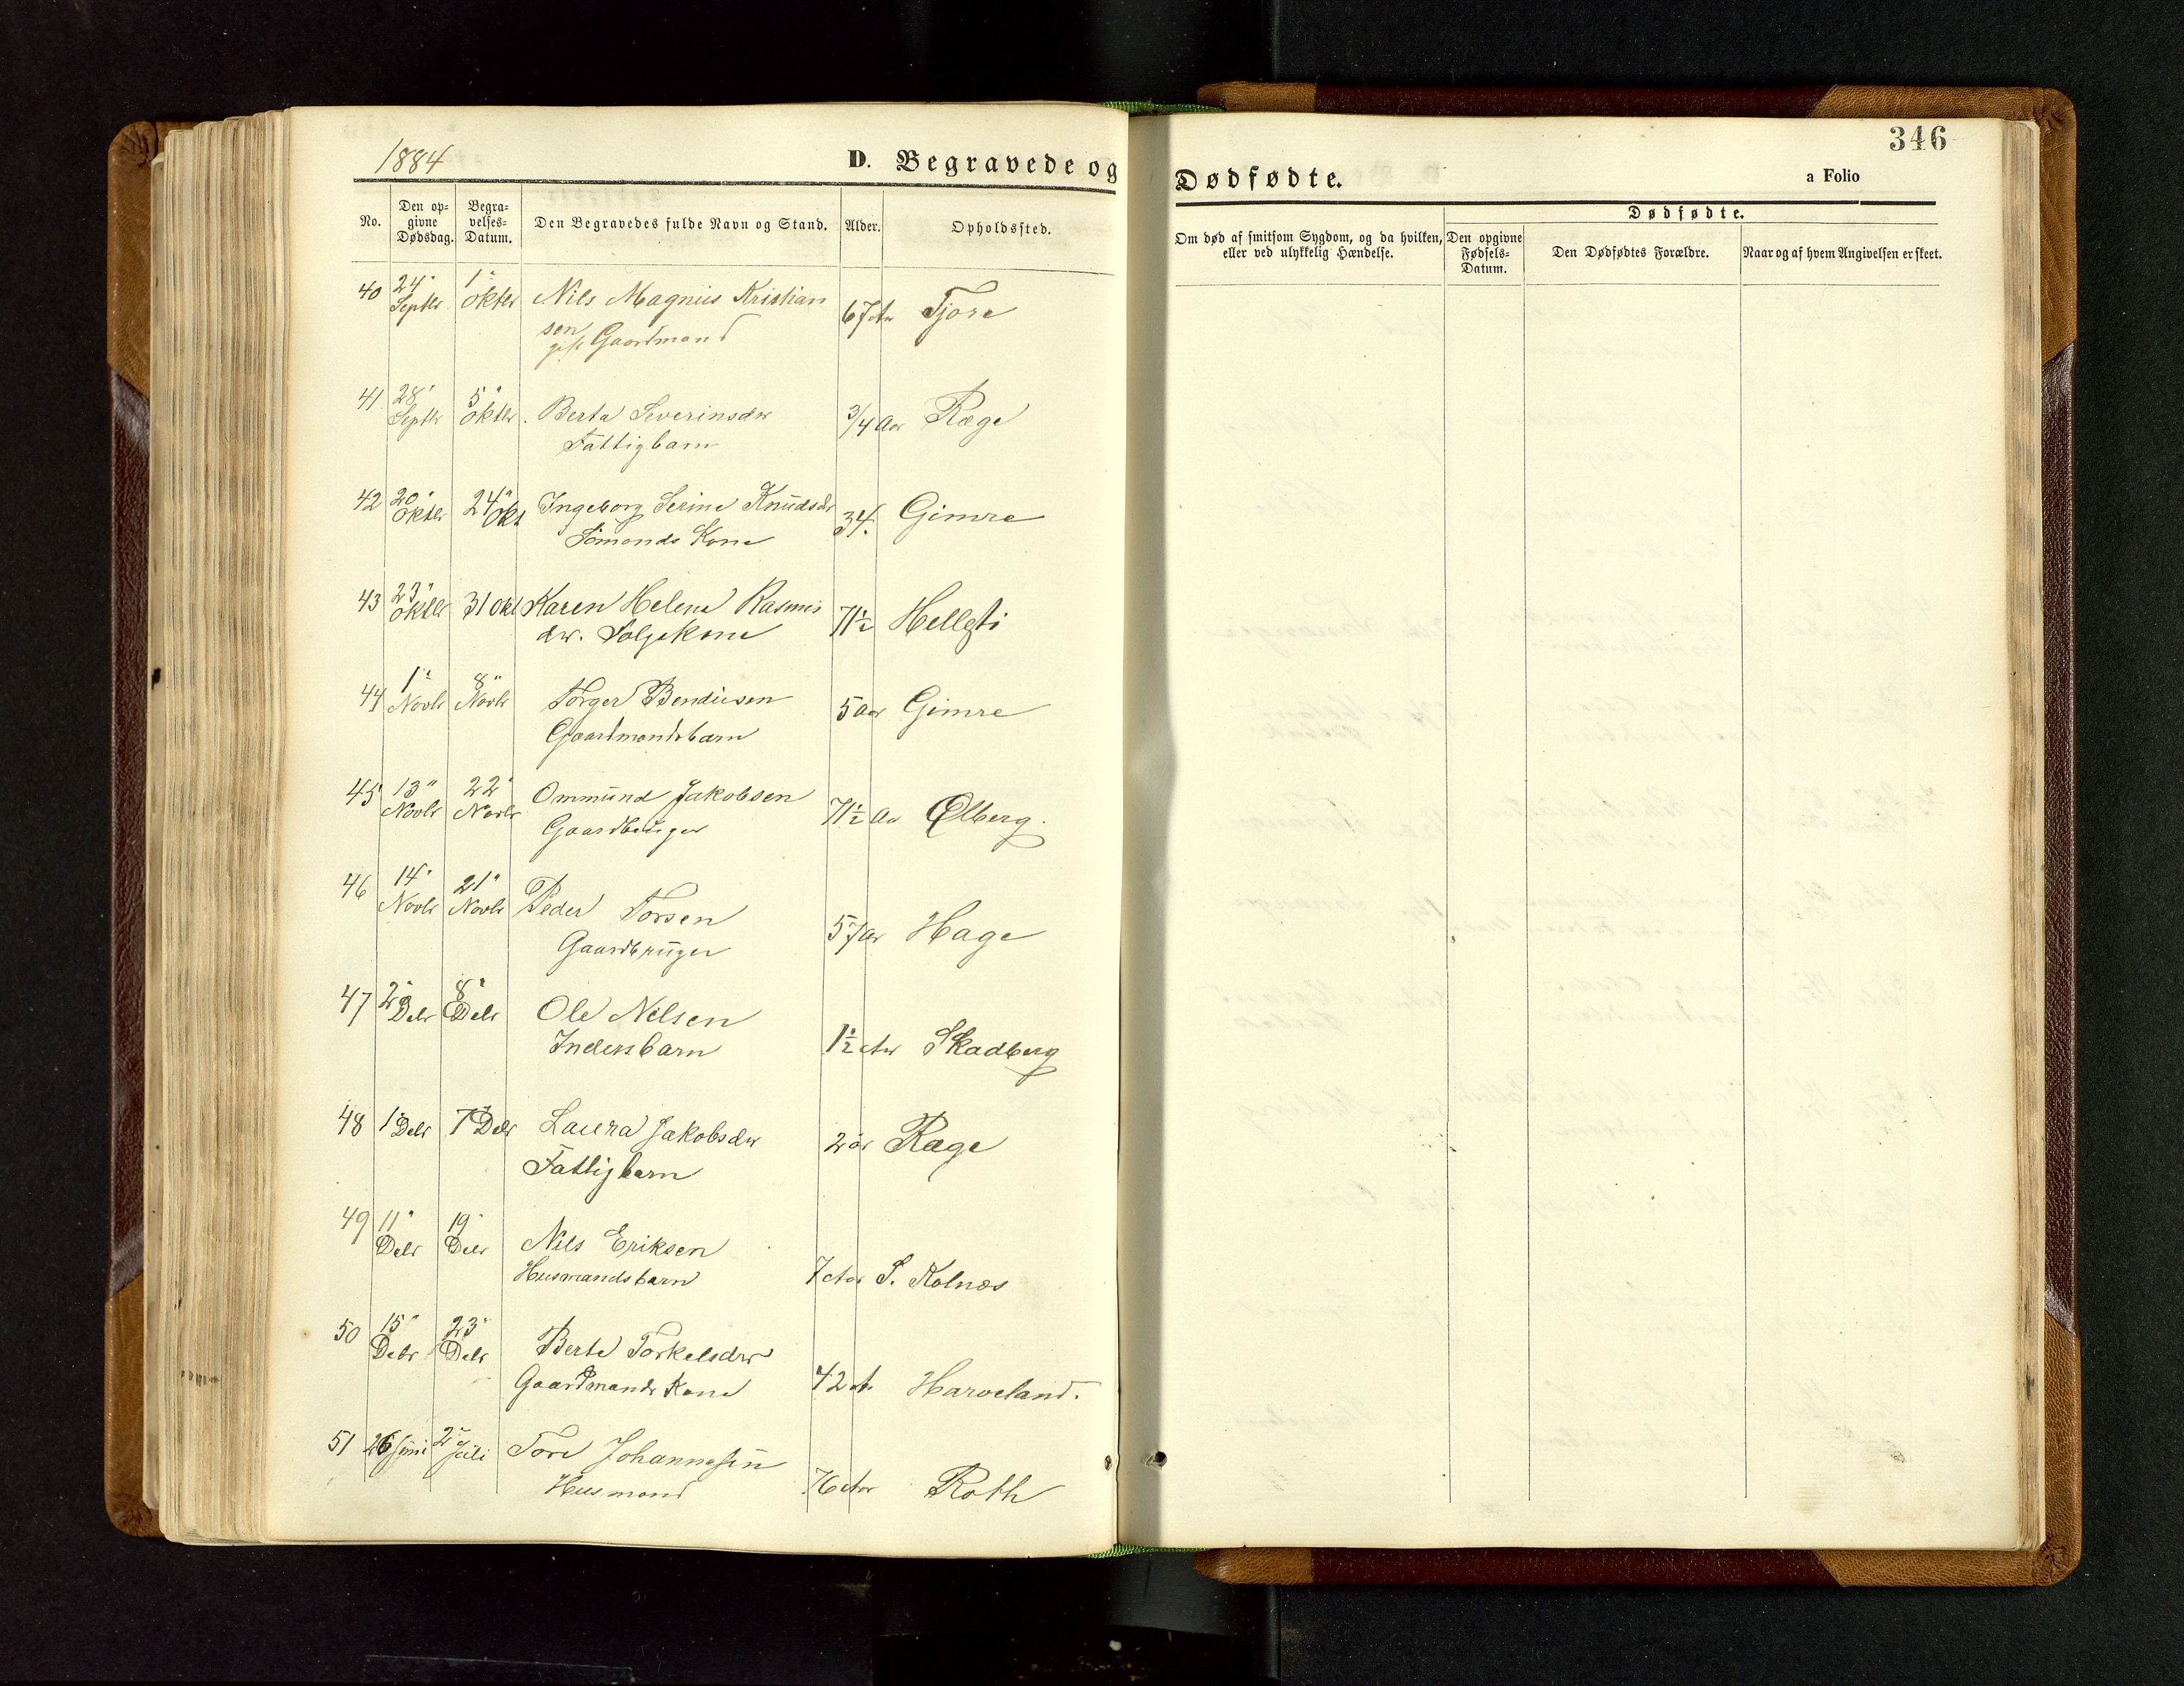 1884
D. Begravede og
No.
Den op=
givne
Dødsdag.
Begra=
velses=
Datum.
Den Begravedes fulde Navn og Stand.
Alder.
Opholdssted.
40 24" Septbr 1" Oktbr Nils Magnus Kristian
sen 67 Aar Tjore
gift Gaardmand
41 28" Septbr 5" Oktbr. Berta Severinsdtr 3/4 Aar Ræge
Fattigbarn
42 20" Oktbr 24" Okt Ingeborg Serine Knudsdtr 34. Gimre
Sømands Kone
43 23" Oktbr 31 Okt Karen Helene Rasmus
dtr. Følgekone 71½ Hellesti
44 1" Novbr 8" Novbr Torger Bendixsen 5 Aar Gimre
Gaardmandsbarn
45 13" Novbr 22" Novbr Ommund Jakobsen 71½ Aar Ølberg.
Gaardbruger
46 14" Novbr 21" Novbr Peder Torsen 57 Aar Hage
Gaardbruger
47 2" Debr 8" Debr Ole Nilsen
Inderstbarn 1½ Aar Skadberg
48 1" Debr 7" Debr Laura Jakobsdtr 2 år Ræge
Fattigbarn
49 11" Debr 19" Debr Nils Eriksen
Husmandsbarn 7 Aar S. Kolnæs
50 15" Debr 23" Debr Berte Torkelsdtr
Gaardmands Kone 42 A Harveland.
51 26 Juni 2" Juli Tore Johannesen
Husmand 76 Aar Roth
346
Dødfødte.
a Folio
Om død af smitsom Sygdom, og da hvilken,
eller ved ulykkelig Hændelse.
Dødfødte.
Den opgivne
Fødsels=
Datum.
Den Dødfødtes Forældre.
Naar og af hvem Angivelsen er skeet.